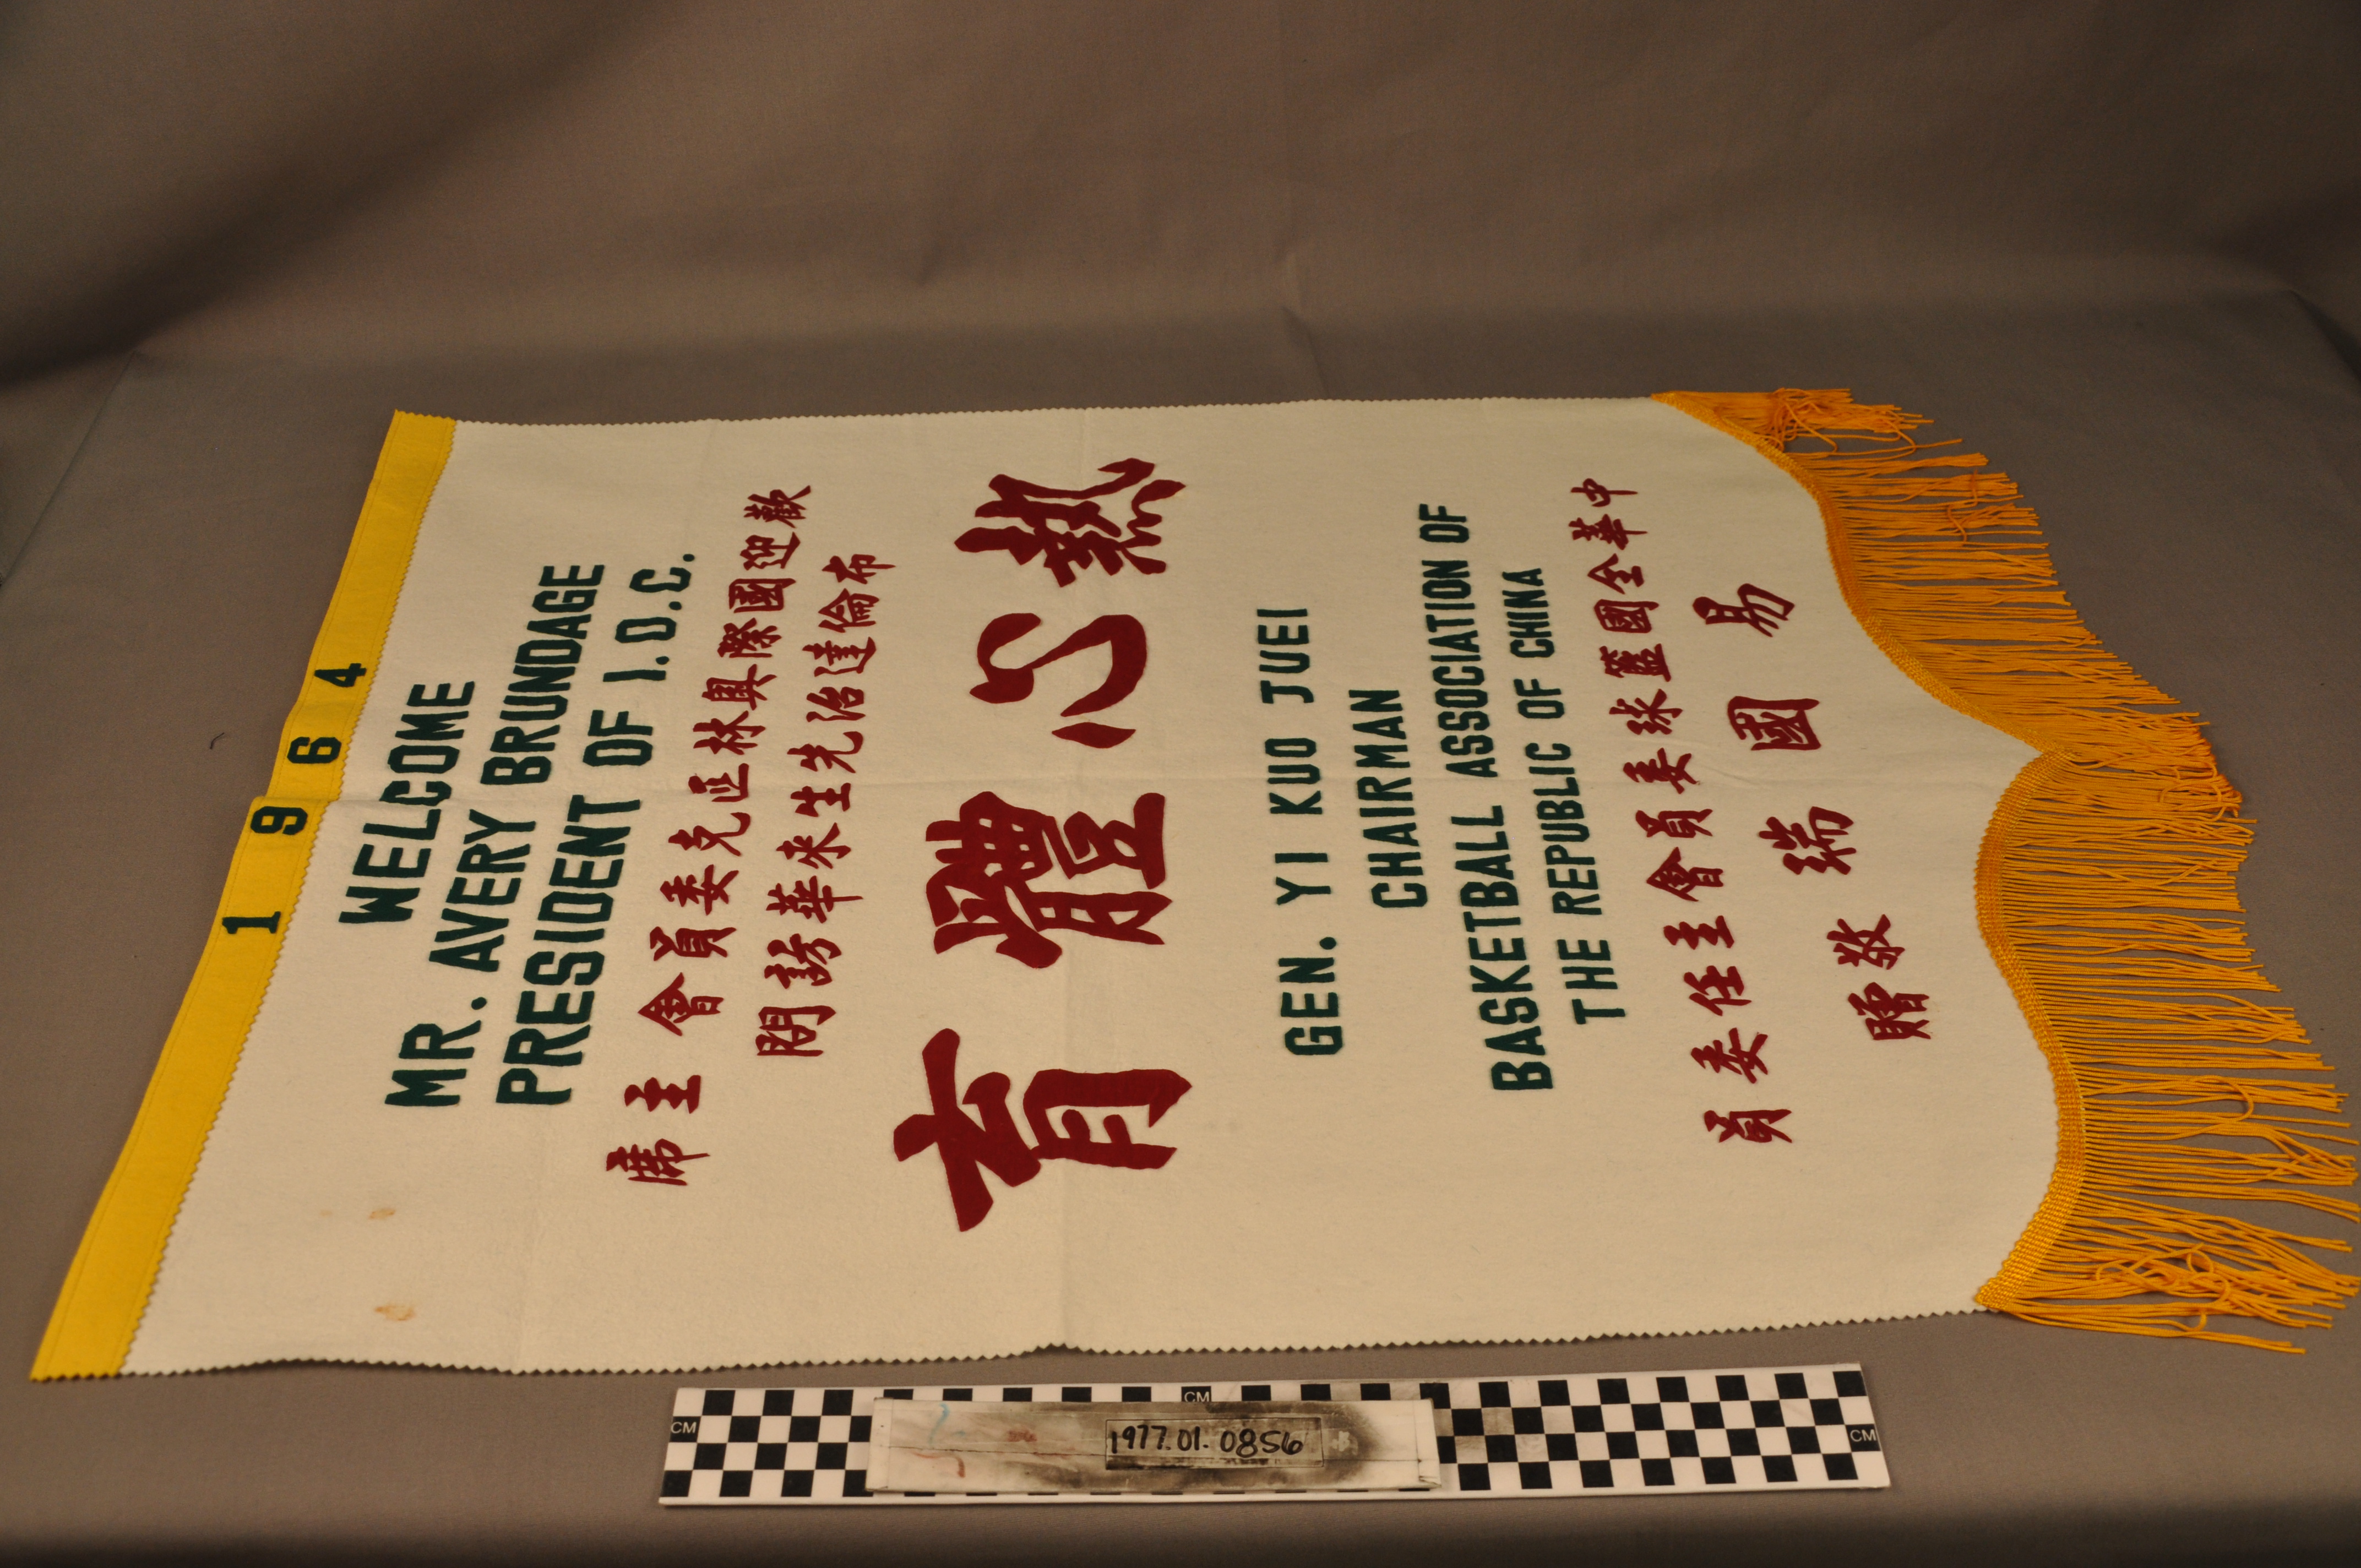 1964
WELCOME
MR. AVERY BRUNDAGE
PRESIDENT OF I.O.C.
歡迎國際奧林匹克委員會主席
布倫達治先生來華訪問
熱心體育
GEN. YI KUO JUEI
CHAIRMAN
BASKETBALL ASSOCIATION OF
THE REPUBLIC OF CHINA
中華全國籃球委員會主任委員
易國瑞敬贈
CM
CM
CM
1977.01.0856